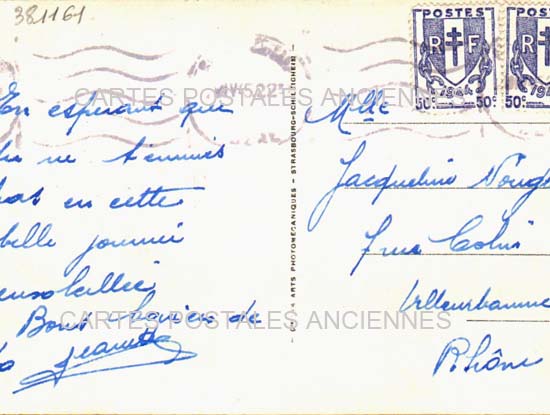 381161
POSTES POSTES
RF R
1944 194
50c 50c 50c
CARTES POSTALES ANCIENNES
En espérant que
tu ne t'ennuies
pas en cette
belle journée
ensoleillée
Bons baisers de
CARTES POSTALES ANCIENNES
ARTS PHOTOMECANIQUES - STRASBOURG-SCHILTIGHEIM
Mlle
Jacqueline
7 rue Colin
Villeurbanne
Rhône